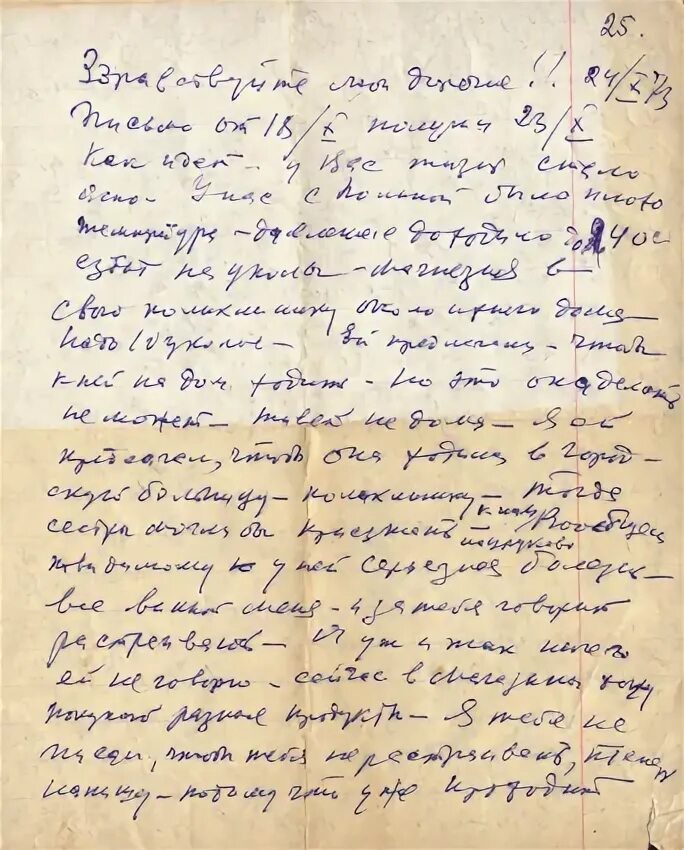 25.
Здравствуйте мои дорогие!! 24/X 73
Письмо от 18/X получил 23/X
Как идет – у Вас жизнь стало
ясно. У нас с Полькой было плохо
температура – давление доходило до 240
ездит на уколы – магнезия в
свою поликлинику около нашего дома –
Надо 10 уколов – Ей предлагали – чтобы
к ней на дом ходить – Но это она делать
не может – дома – Я ей
предлагал, чтобы она ходила в город-
скую больницу – поликлинику – тогда
сестры могли бы приезжать к нам Вообще
повидимому у ней серьезная болезнь –
все винит меня – и за тебя говорит
растраивают – Я уж и так ничего
ей не говорю – сейчас в магазины хожу
покупаю разные продукты – Я тебе не
писал, чтобы тебя не растраивать, теперь
напишу – потому что уже проходит